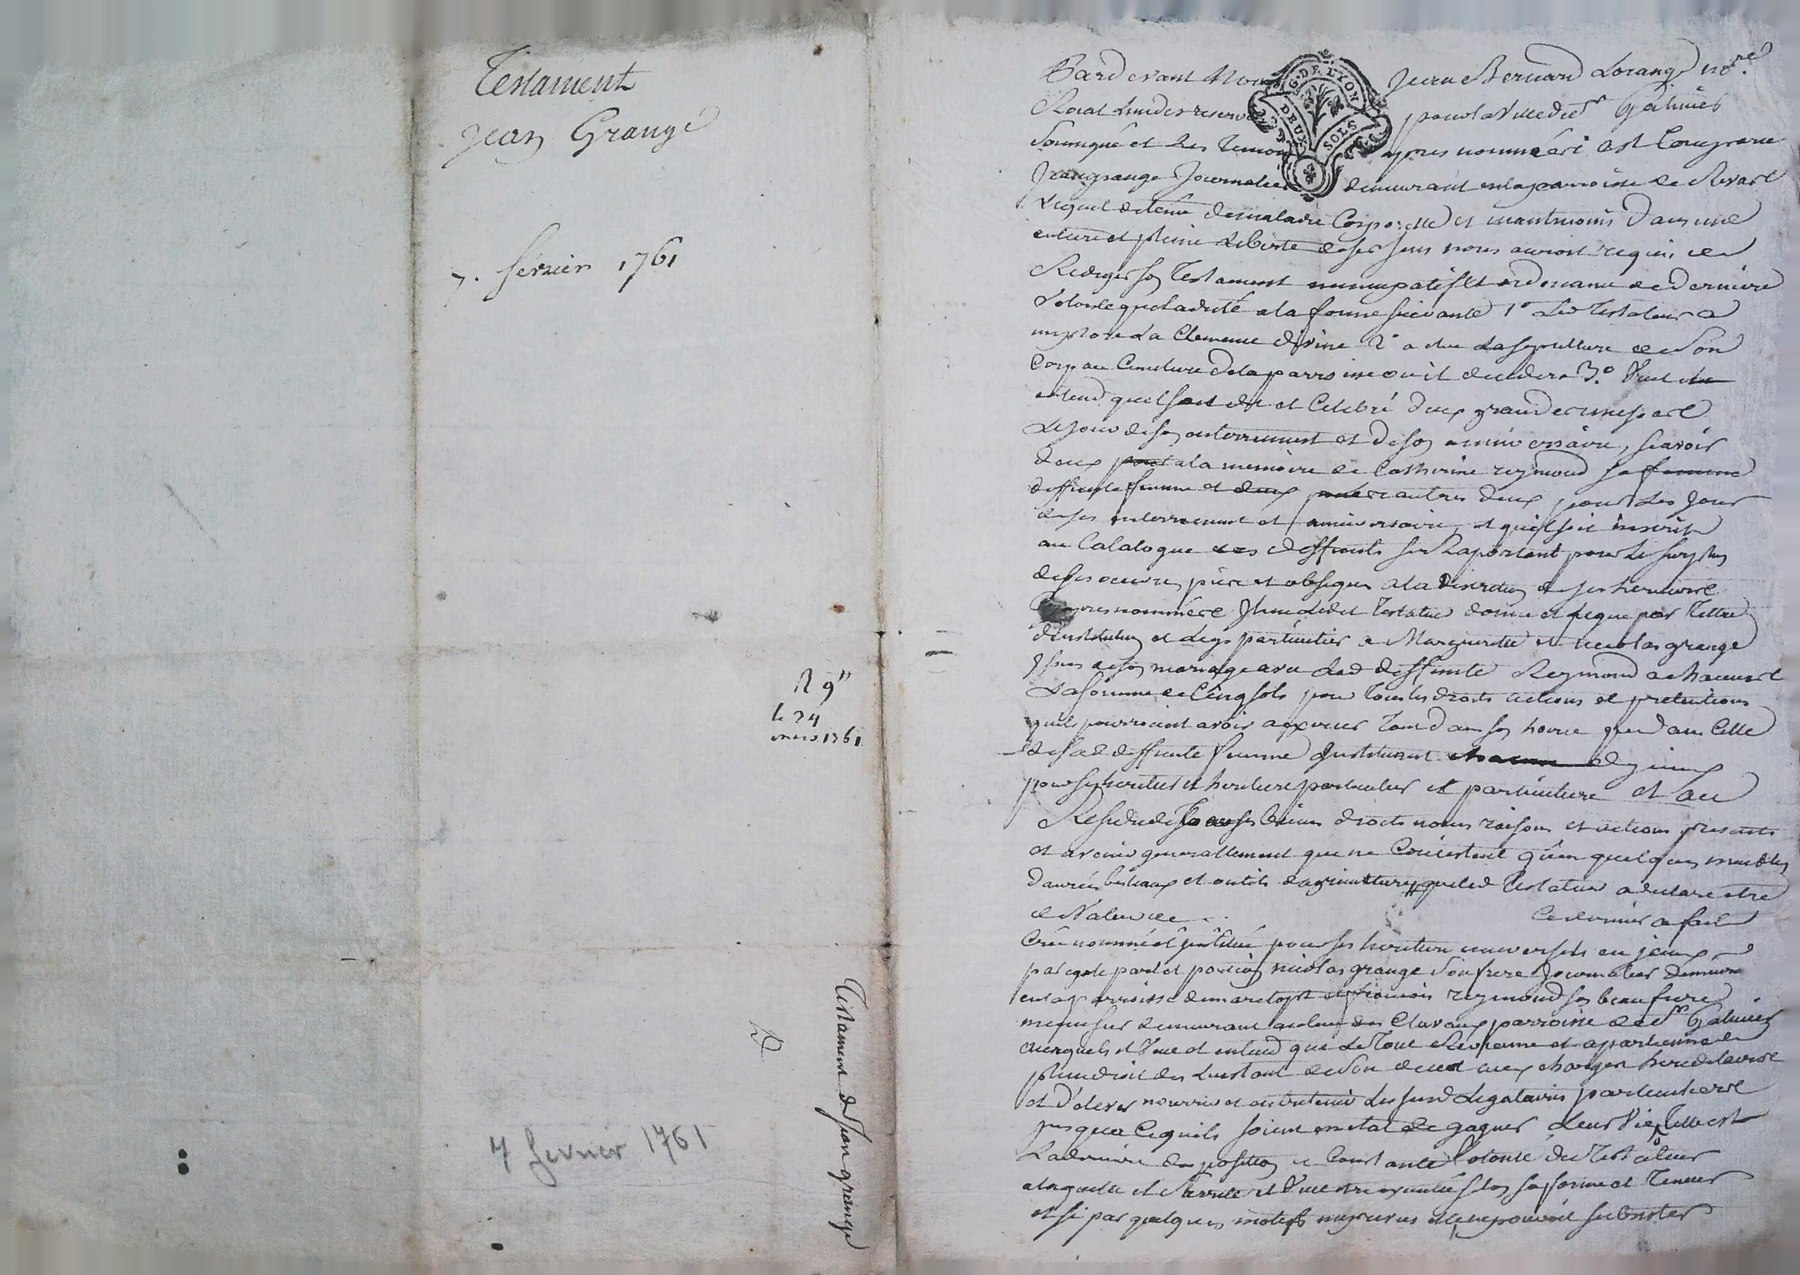 Testament
Jean Grange
7. fevrier 1761
R 9"
le 24
mars 1761
Testament de Jean grange
7 fevrier 1761
G. DE LYON
DEUX SOLS
Pardevant Nous Jean Bernard Lorange no.re
Roial pour la Ville de St Galmier
Soussigné et Les temoins apres nommés est Comparu
Jean grange Journalier demeurant en la parroisse de
Lequel detenu de maladie Corporelle et neantmoins dans une
entiere et pleine Liberte de ses sens nous auroit requis de
Rediger son Testament nuncupatif et ordonnance de derniere
Volonte quil a dicté a la forme suivante 1° Led Testateur a
imploré La Clemence divine 2° a elu La sepulture de Son
Corp au Cimetiere de la parroisse ou il decedera 3.° Veut
entend quil soit dit et Celebré deux grandes messes
Le jour de son enterrement et de son anniversaire, scavoir
deux a la memoire de Catherine reymond sa femme
deffunte femme et deux autres deux pour Les Jour
de ses enterrement et anniversaire, et quil soit inscrit
au Catalogue des deffunts se Raportant pour Le surplus
de ses oeuvres pies et obseques a la discretion de ses heritiers
apres nommés Led Testateur donne et legue par Titre
d'institution et Legs particulier a Marguerite et nicolas grange
de son mariage avec Lad deffunte Reymond a chacun
La somme de Cinq sols pour Tous Les droits actions et pretentions
quils pourroient avoir a exercer Tant dans son hoirie que dans Celle
de sad deffunte femme Instituant
pour ses heritier et heritiere particulier et particuliere et au
Residu de Tous ses biens droits noms raisons et actions presents
et avenir generallement que ne Consistent qu'en quelques meubles
bestiaux et outils d'agriculture que led Testateur a declaré etre
de Valeur de ... Ce dernier a fait
Créé nommé et institué pour ses heritiers universels
par egale part et portion nicolas grange Son frere Journalier demeurant
en la parroisse de et reymond son beau frere
demeurant au lieu des Clavaux parroisse de St Galmier
auxquels il Veut et entend que Le Tout Revienne et apartienne de
plein droit des Linstant de Son deces aux charges hereditaires
et d'elever nourrir et entretenir Les susd Legataires particuliers
jusqua Ce quils soient en etat de gagner Leur Vie, Telle est
La derniere disposition et Constante Volonté du Testateur
a laquelle il Veut etre executée selon sa forme et Teneur
et si par quelques motifs ne pouvoit subsister